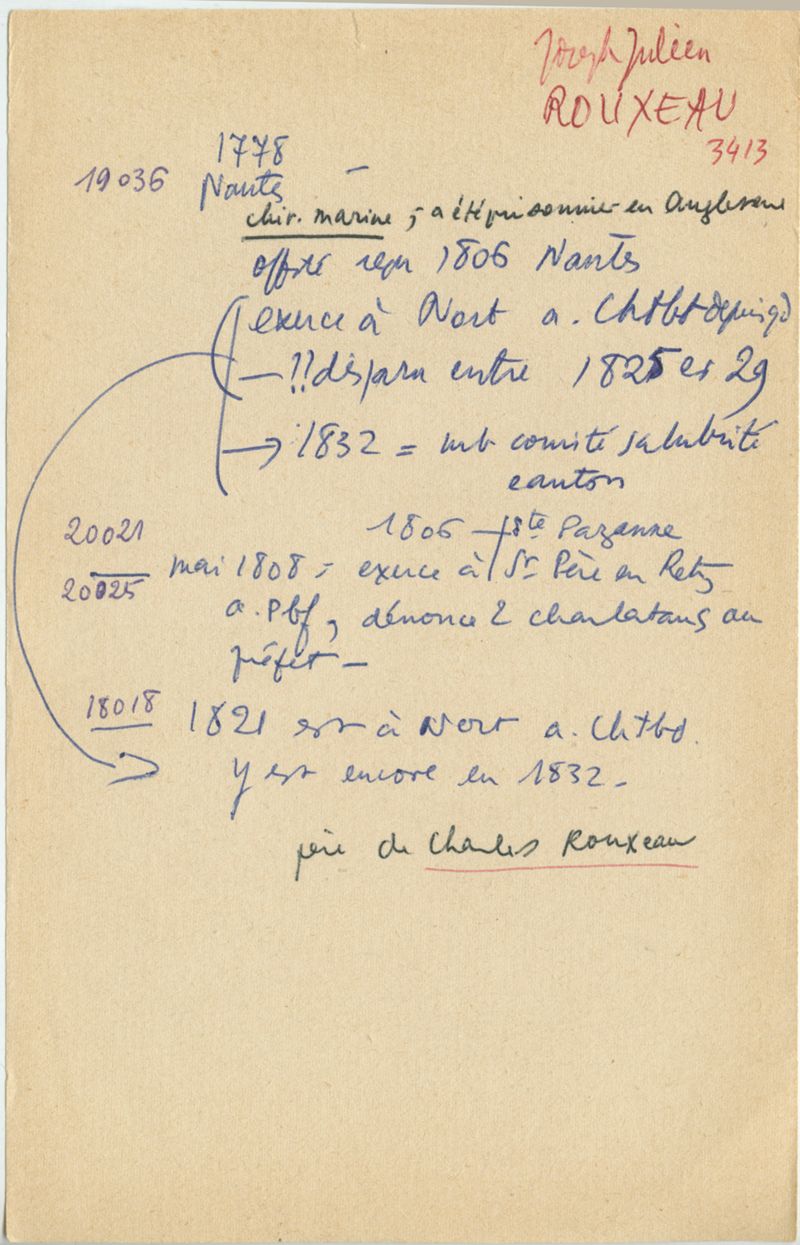 Joseph Julien
ROUXEAU
3413
1778
19036 Nantes –
chir. marine ; – a été prisonnier en Angleterre
offsté reçu 1806 Nantes
exerce à Nort a. Chtbt depuis qd
– !! disparu entre 1825 et 29
→ 1832 = mb comité salubrité
canton
20021 1806 – Ste Pazanne
20025 mai 1808 ; – exerce à St Père en Retz
a. Pbf, dénonce 2 charlatans au
préfet –
18018 1821 est à Nort a. Chtbd.
Y est encore en 1832 –
père de Charles Rouxeau